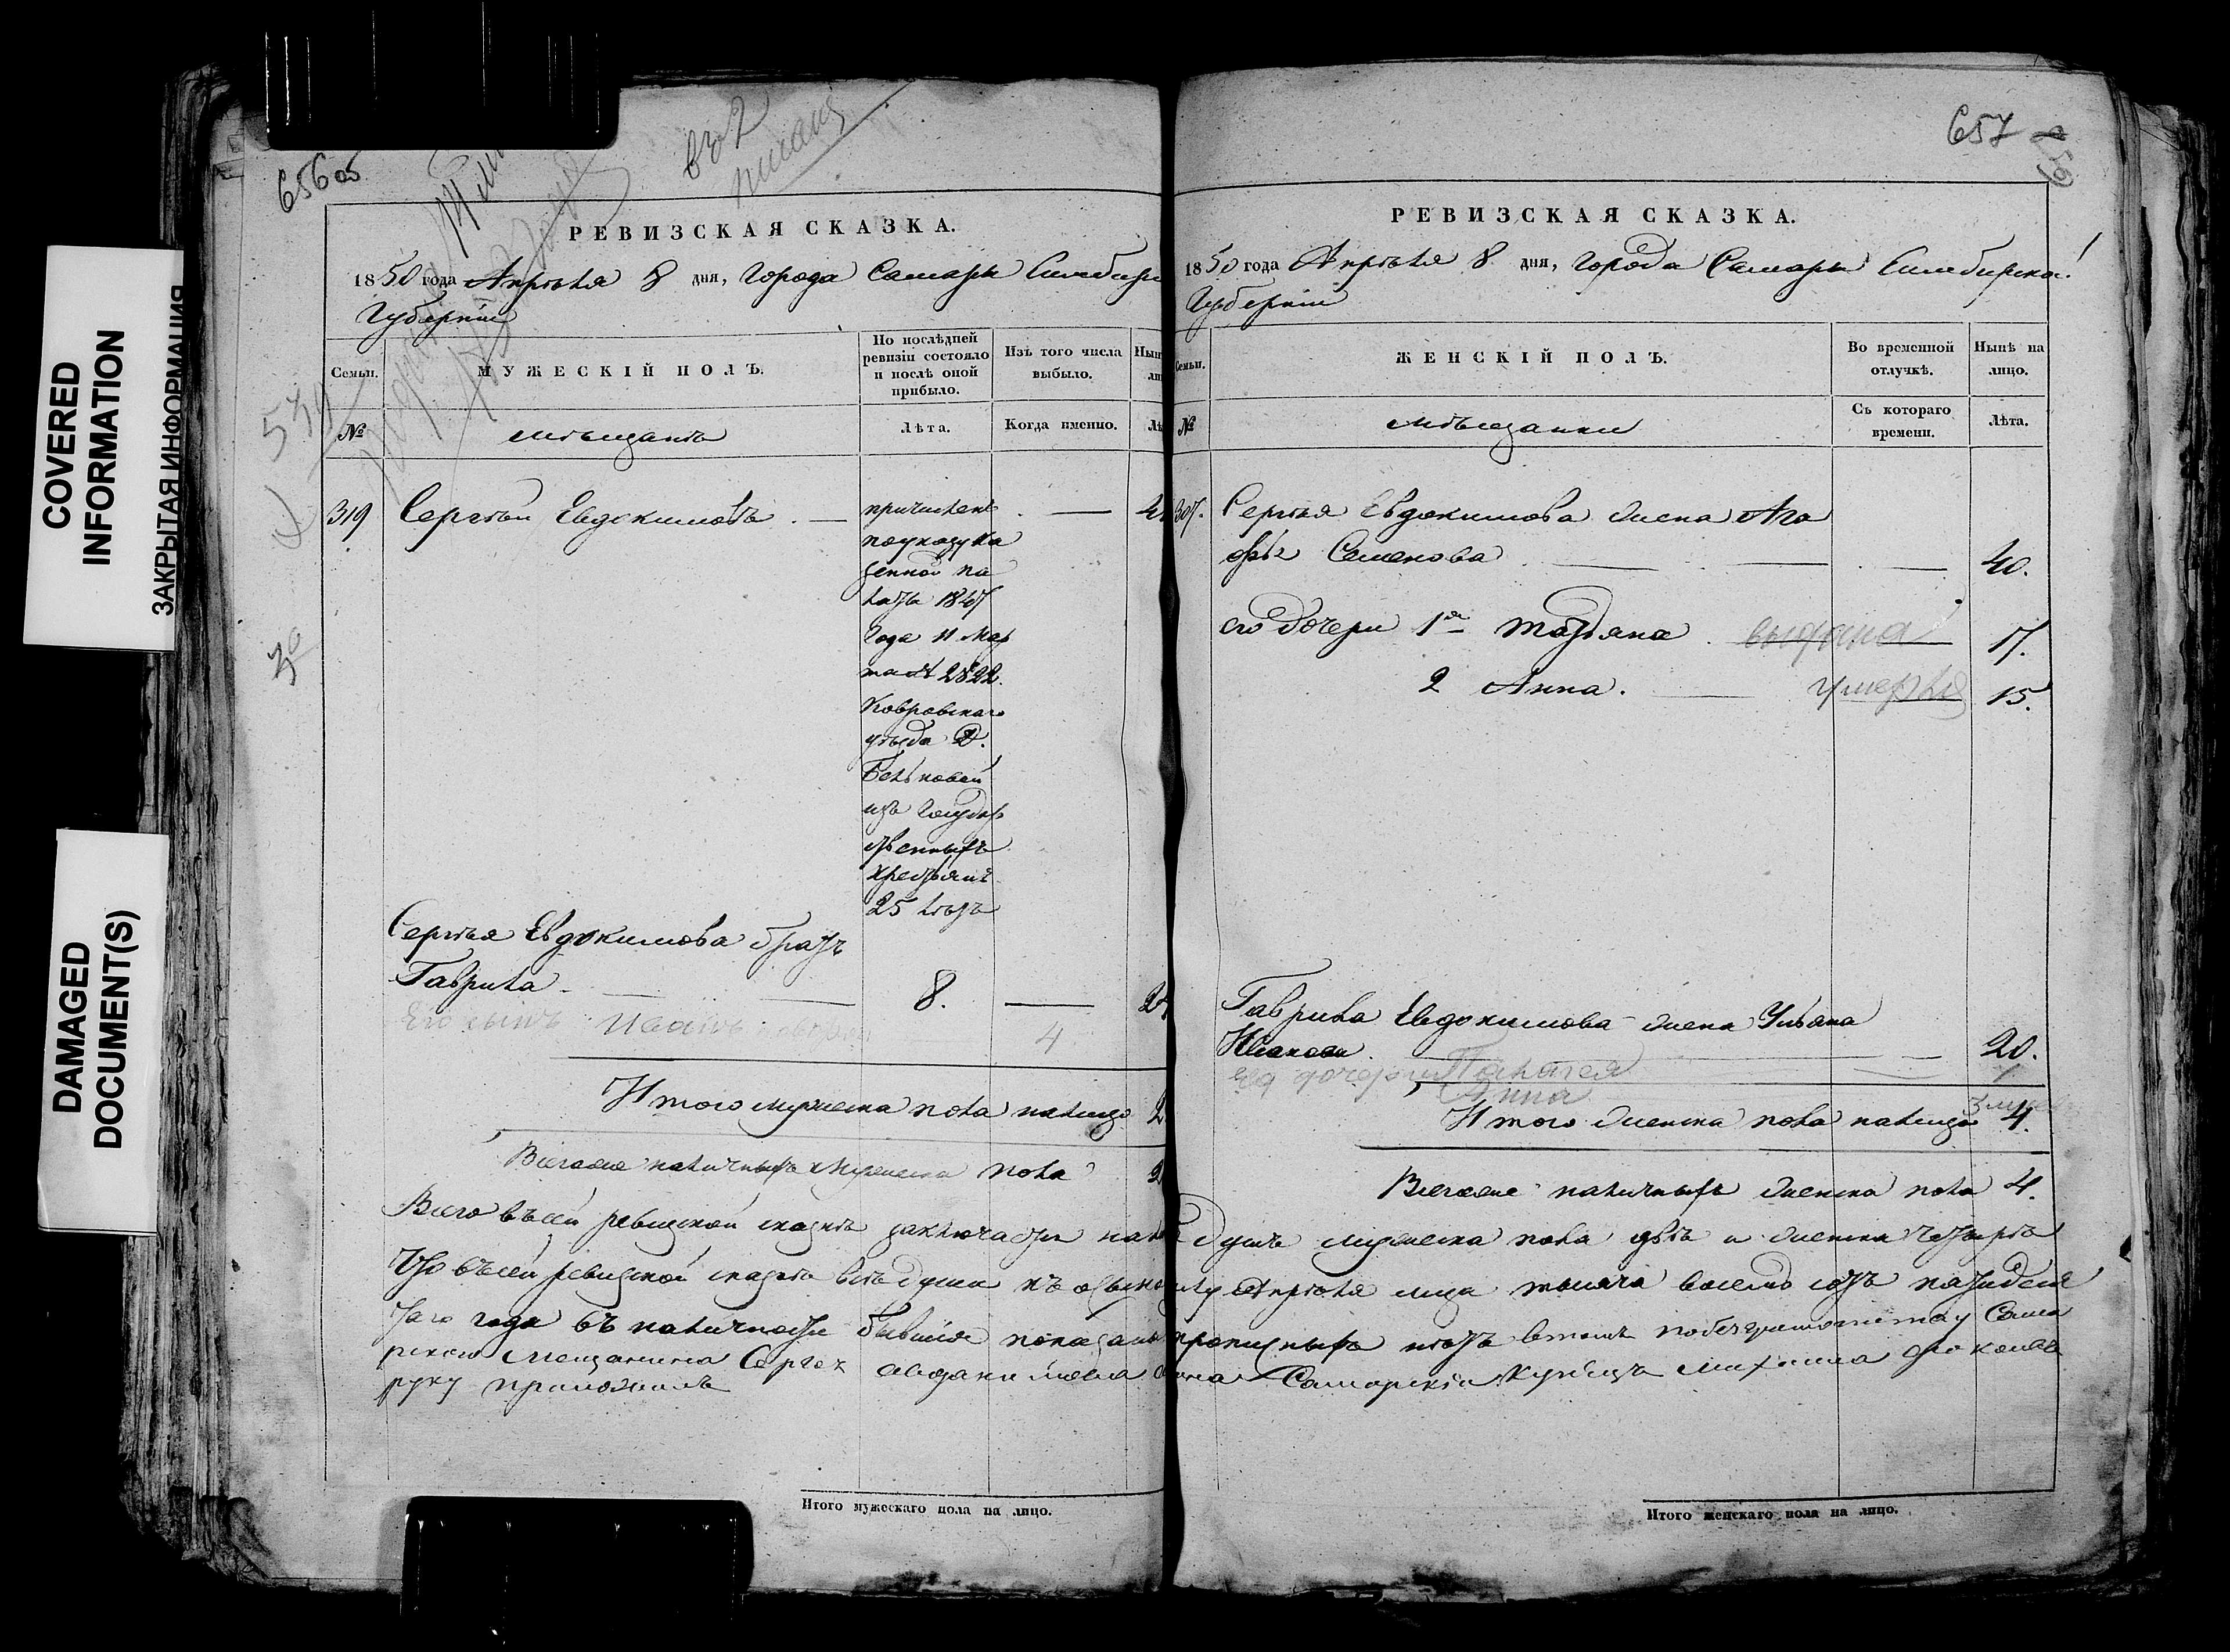 COVERED
INFORMATION
ЗАКРЫТАЯ ИНФОРМАЦИЯ
DAMAGED
DOCUMENT(S)
656 об
РЕВИЗСКАЯ СКАЗКА.
1850 года Апрѣля 8 дня, Города Самары Симбир
Губерніи
Семьи.
МУЖЕСКІЙ ПОЛЪ.
По послѣдней
ревизіи состояло
и послѣ оной
прибыло.
Изъ того числа
выбыло.
№
мѣщанъ
Лѣта.
Когда именно.
319
Сергѣй Евдокимовъ
причисленъ
по указу Ка
зенной па
латы 1847
года 11 Мар
та № 2822.
Ковровскаго
уѣзда Д.
из Государ
ственныхъ
крестьянъ
25 лѣтъ
Сергѣя Евдокимова братъ
Гаврила 8.
Его сынъ Иванъ 4
Итого мужеска пола налицо 2
Всего наличныхъ мужеска пола 2
657
РЕВИЗСКАЯ СКАЗКА.
1850 года Апрѣля 8 дня, Города Самары Симбирской
Губерніи
Семьи.
ЖЕНСКІЙ ПОЛЪ.
Во временной
отлучкѣ.
Нынѣ на
лицо.
№
мѣщанки
Съ котораго
времени.
Лѣта.
307. Сергѣя Евдокимова жена Ага
фья Семенова 40.
его дочери 1я Татьяна выдана 17.
2 Анна. умерла 15.
Гаврила Евдокимова жена Ульяна
Иванова 20.
его дочери Палагея
Анна
Итого женска пола налицо 4.
Всего наличныхъ женска пола 4.
Всего въ сей ревизской сказкѣ заключается душъ мужеска пола двѣ и женска четыре
Что въ сей ревизской сказкѣ всѣ души къ Апрѣля мца тысяча восемь сотъ пятидеся
таго года въ наличности бывшіе показаны прописныхъ нѣтъ въ томъ по безграмотству Сама
рскаго Мещанина Сергея авдакимова Самарскій купецъ
руку приложилъ
Итого мужескаго пола на лицо.
Итого женскаго пола на лицо.